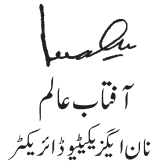 آفتاب عالم
نان ایگزیکیٹیو ڈائریکٹر